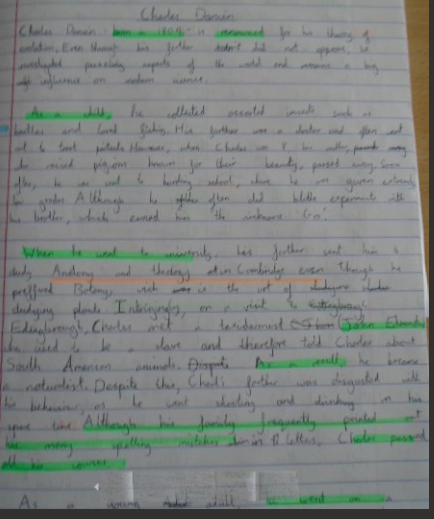 Charles Darwin
Charles Darwin born in 1809 is renowned for his theory of
evolution. Even though his father did not approve, he
investigated puzzling aspects of the world and remains a big
influence on modern science.
As a child, he collected assorted insects such as
beetles and loved fishing. His father was a doctor and often went
out to treat patients However, when Charles was 8 his mother,
who raised pigeons known for their beauty, passed away. Soon
after, he was sent to boarding school, where he was given
Although he often did little experiments with
his brother, which earned him the nickname 'Gas'.
When he went to university, his father sent him to
study and theology at in Cambridge even Though he
preffered Botany, wich is the art of
studying plants Intriguingly, on a visit to
Edingbrough, Charles met a taxidermist John Edmonds
who used to be a slave and therefore told Charles about
South American animals. As a result, he became
a naturalist. Despite this, Charles father was disgusted with
his behaviour, as he went shooting and drinking in his
spare time Although his family frequently pointed out
his many spelling mistakes in letters, Charles passed
all his courses
As a young adult, he went on a